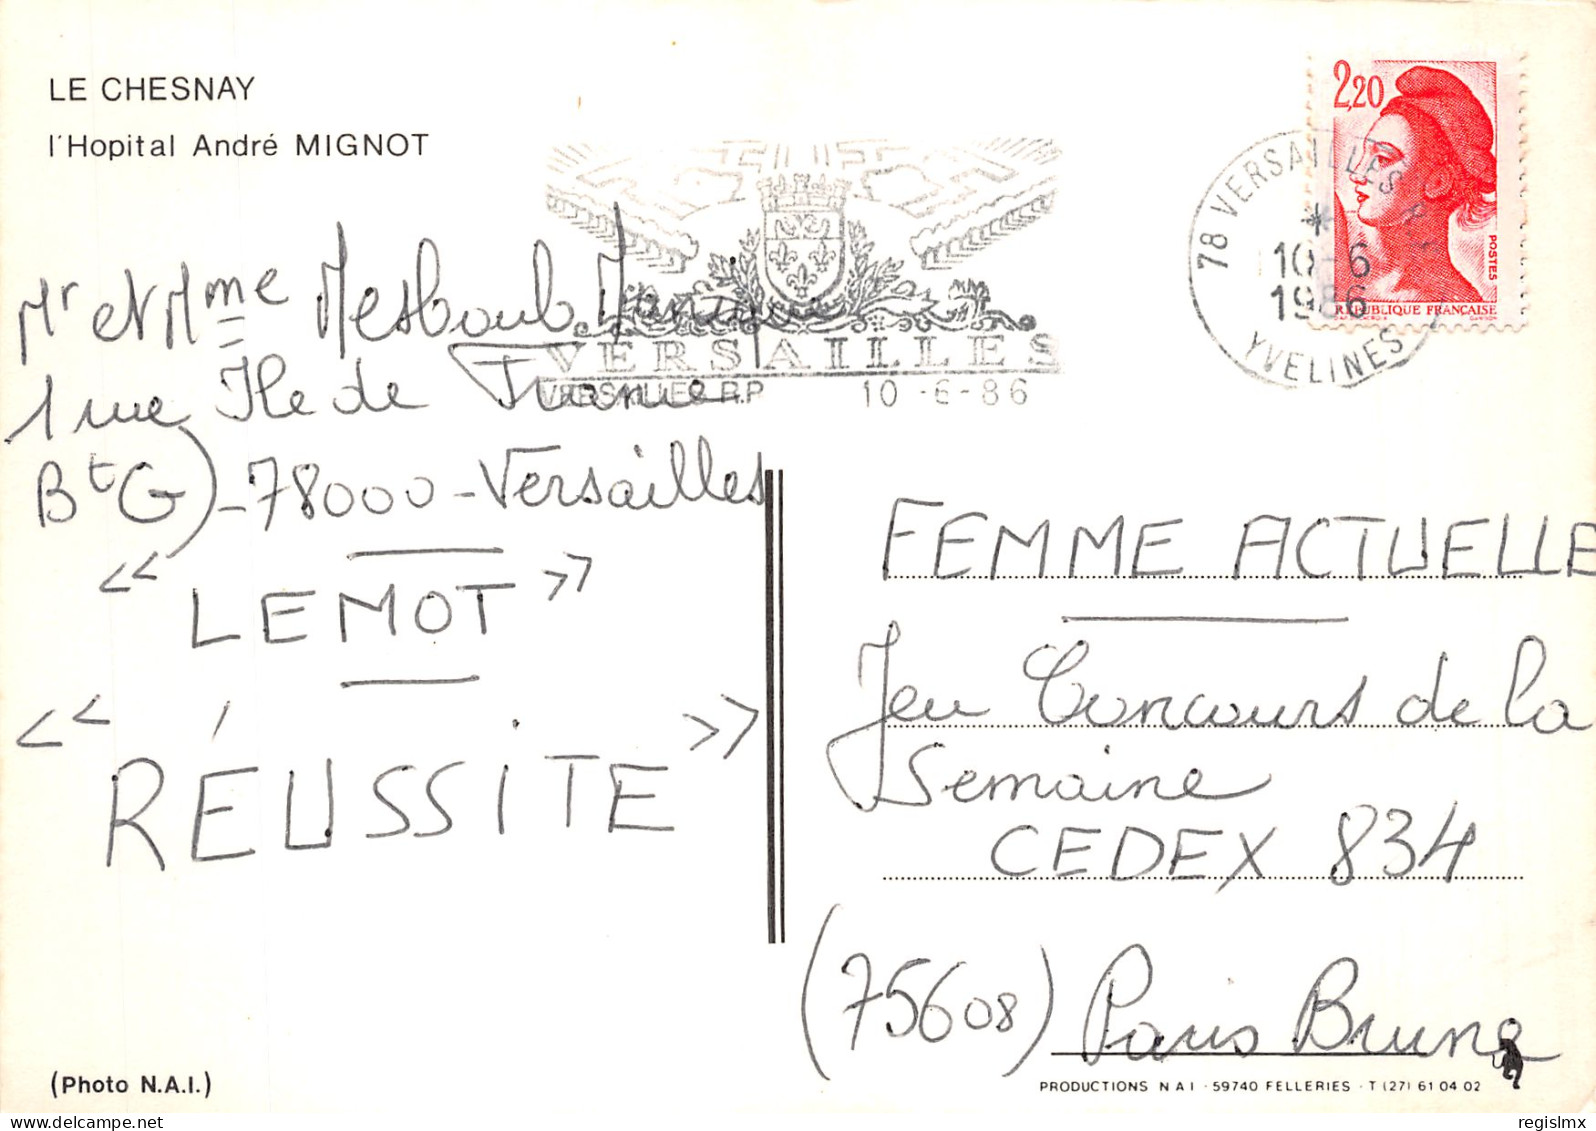 LE CHESNAY
l'Hopital André MIGNOT
2,20
POSTES
RÉPUBLIQUE FRANÇAISE
78 VERSAILLES
10-6
1986
YVELINES
VERSAILLES
VERSAILLES R.P
10-6-86
Mr et Mme Mesboub
1 rue Ile de France
Bt G)-78000-Versailles
<< LE MOT >>
<< RÉUSSITE >>
FEMME ACTUELLE
Jeu Concours de la
Semaine
CEDEX 834
(75608) Paris Brune
(Photo N.A.I.)
PRODUCTIONS N A I - 59740 FELLERIES - T (27) 61 04 02
regislmx